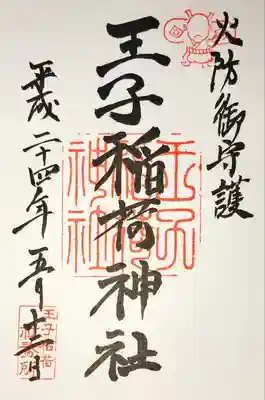 火防御守護
王子稲荷神社
王子
神社
平成二十四年五月十二日
王子稲荷
社務所